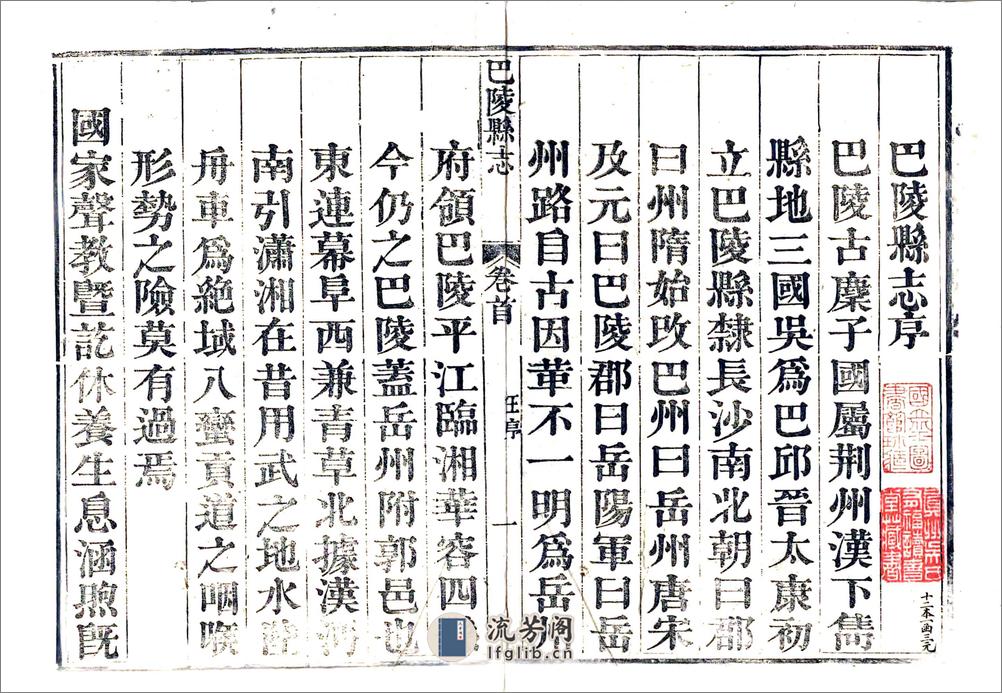 巴陵縣志序
巴陵古麋子國屬荆州漢下雋
縣地三國吳爲巴邱晉太康初
立巴陵縣隸長沙南北朝曰郡
曰州隋始改巴州曰岳州唐宋
及元曰巴陵郡曰岳陽軍曰岳
州路自古因革不一明爲岳州
巴陵縣志
卷首
一
府領巴陵平江臨湘華容四
今仍之巴陵蓋岳州附郭邑也
東連幕阜西兼青草北據漢沔
南引瀟湘在昔用武之地水當
舟車爲絶域八蠻貢道之咽喉
形勢之險莫有過焉
國家聲教暨訖休養生息涵煦既
十二本一函三元
流芳阁
lfglib.cn